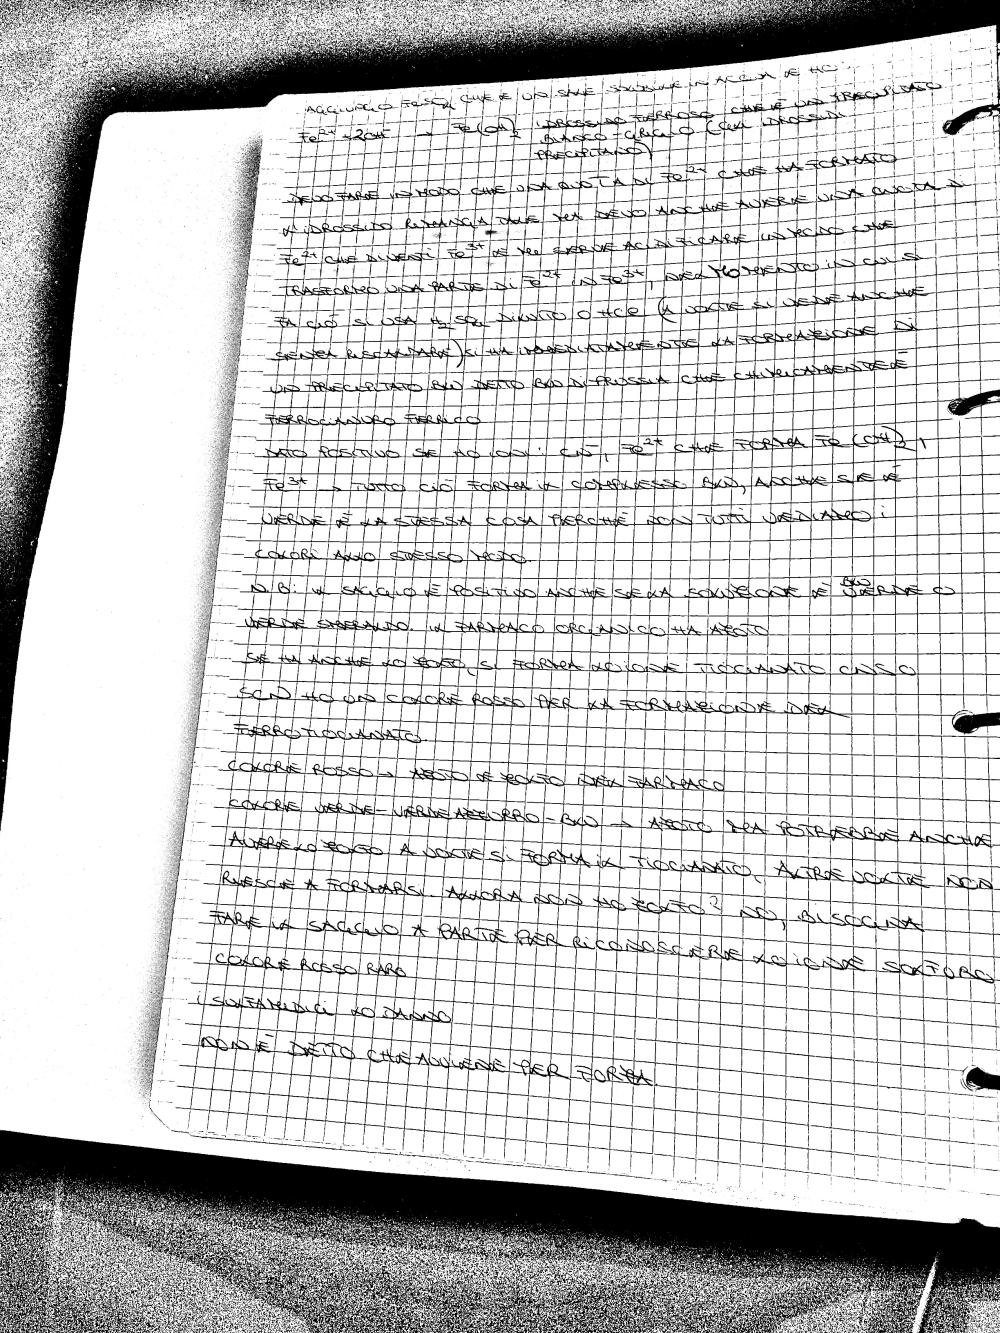 AGGIUNGO FeSO4 CHE È UN SALE SOLUBILE IN ACQUA E HO:
Fe2+ + 2OH- → Fe(OH)2 IDROSSIDO FERROSO CHE È UN PRECIPITATO
BIANCO-GRIGIO (GLI IDROSSIDI
PRECIPITANO)
DEVO FARE IN MODO CHE UNA QUOTA DI Fe2+ CHE HA FORMATO
L'IDROSSIDO RIMANGA TALE MA DEVO ANCHE AVERE UNA QUOTA DI
Fe2+ CHE DIVENTI Fe3+ E MI SERVE ACIDIFICARE IN MODO CHE
TRASFORMO UNA PARTE DI Fe2+ IN Fe3+, NEL MOMENTO IN CUI SI
FA CIÒ SI USA H2SO4 DILUITO O HCl (A VOLTE SI VEDE ANCHE
SENZA RISCALDARE) SI HA IMMEDIATAMENTE LA FORMAZIONE DI
UN PRECIPITATO BLU DETTO BLU DI PRUSSIA CHE CHIMICAMENTE È
FERROCIANURO FERRICO
DATO POSITIVO SE HO IONI: CN-, Fe2+ CHE FORMA Fe(OH)2,
Fe3+ → TUTTO CIÒ FORMA IL COMPLESSO BLU, ANCHE SE È
VERDE È LA STESSA COSA PERCHÉ NON TUTTI VEDIAMO I
COLORI ALLO STESSO MODO.
N.B: IL SAGGIO È POSITIVO ANCHE SE LA SOLUZIONE È BLU VERDE O
VERDE SMERALDO. IL FARMACO ORGANICO HA AZOTO
SE HA ANCHE LO ZOLFO, SI FORMA LO IONE TIOCIANATO CNS O
SCN HO UN COLORE ROSSO PER LA FORMAZIONE DEL
FERROTIOCIANATO.
COLORE ROSSO → AZOTO E ZOLFO DEL FARMACO
COLORE VERDE-VERDE AZZURRO-BLU → AZOTO MA POTREBBE ANCHE
AVERE LO ZOLFO A VOLTE SI FORMA IL TIOCIANATO, ALTRE VOLTE NON
RIESCE A FORMARSI. ALLORA NON HO ZOLFO? NO, BISOGNA
FARE IL SAGGIO A PARTE PER RICONOSCERE LO IONE SOLFURO
COLORE ROSSO RARO
I SULFAMIDICI LO DANNO
NON È DETTO CHE AVVIENE PER FORZA.